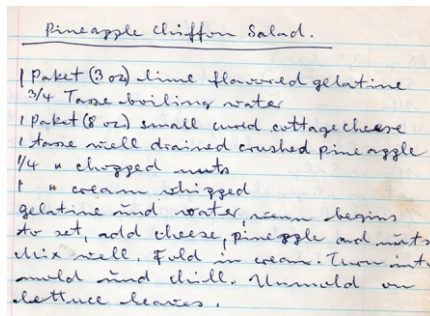 Pineapple Chiffon Salad.
1 Paket (3 oz) lime flavored gelatine
3/4 Tasse boiling water
1 Paket (8 oz) small curd cottage cheese
1 tasse well drained crushed pineapple
1/4 " chopped nuts
1 " cream whipped
gelatine und water, wenn begins
to set, add cheese, pineapple and nuts
Mix well. Fold in cream. Turn into
mold und chill. Unmold on
lettuce leaves.